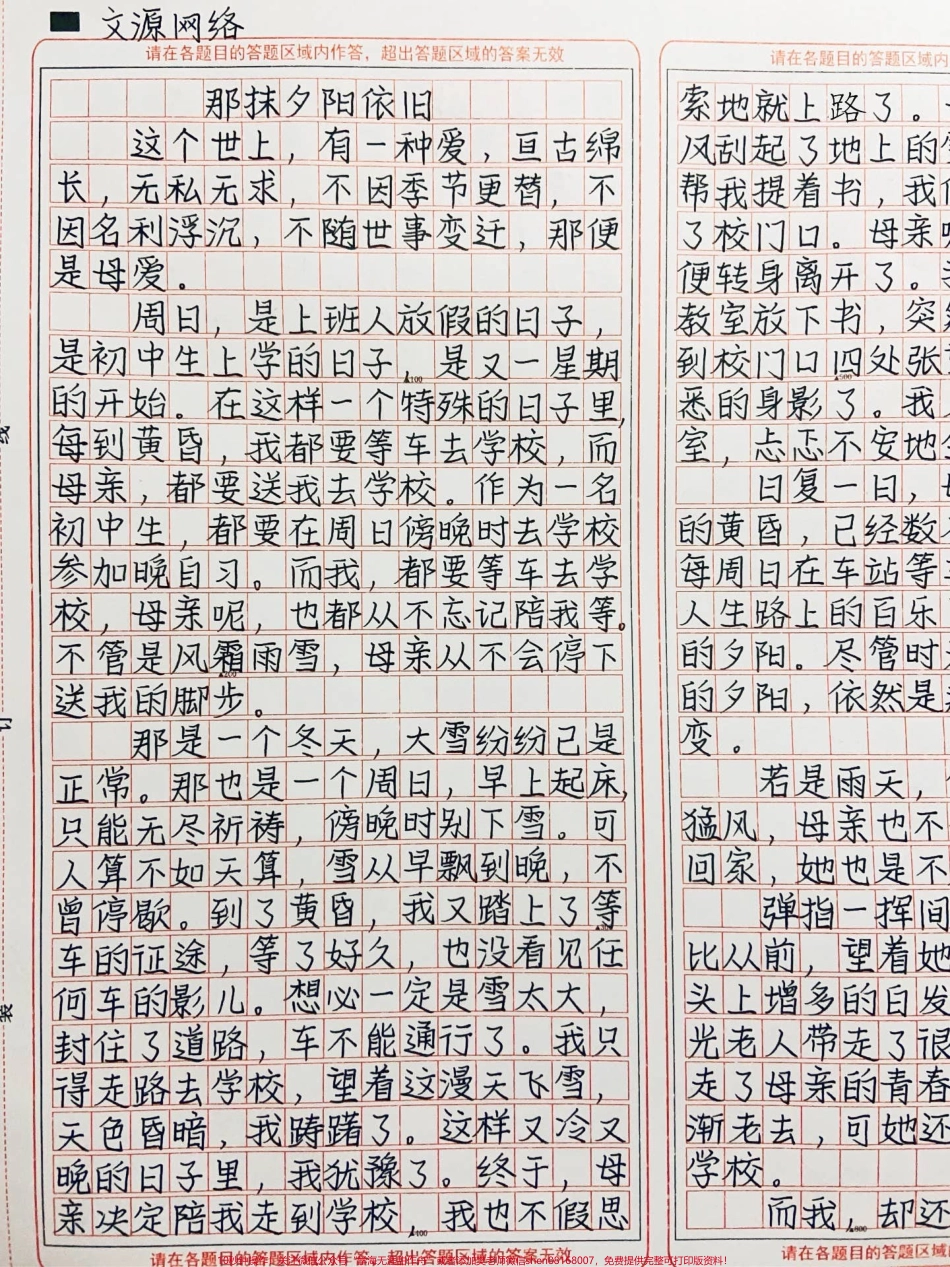 文源网络
请在各题目的答题区域内作答，超出答题区域的答案无效
那抹夕阳依旧
这个世上，有一种爱，亘古绵
长，无私无求，不因季节更替，不
因名利浮沉，不随世事变迁，那便
是母爱。
周日，是上班人放假的日子，
是初中生上学的日子，是又一星期
▲100
的开始。在这样一个特殊的日子里，
每到黄昏，我都要等车去学校，而
母亲，都要送我去学校。作为一名
初中生，都要在周日傍晚时去学校
参加晚自习。而我，都要等车去学
校，母亲呢，也都从不忘记陪我等。
不管是风霜雨雪，母亲从不会停下
▲200
送我的脚步。
那是一个冬天，大雪纷纷已是
正常。那也是一个周日，早上起床，
只能无尽祈祷，傍晚时别下雪。可
人算不如天算，雪从早飘到晚，不
曾停歇。到了黄昏，我又踏上了等
▲300
车的征途，等了好久，也没看见任
何车的影儿。想必一定是雪太大，
封住了道路，车不能通行了。我只
得走路去学校，望着这漫天飞雪，
天色昏暗，我踌躇了。这样又冷又
晚的日子里，我犹豫了。终于，母
亲决定陪我走到学校，我也不假思
▲400
请在各题目的答题区域内作答，超出答题区域的答案无效
线
订
装
请在各题目的答题区域内
索地就上路了。
风刮起了地上的
帮我提着书，我
了校门口。母亲
便转身离开了。
教室放下书，突
到校门口四处张
▲500
悉的身影了。我
室，忐忑不安地
日复一日，
的黄昏，已经数
每周日在车站等
人生路上的百乐
的夕阳。尽管时
的夕阳，依然是
变。
若是雨天，
猛风，母亲也不
回家，她也是不
弹指一挥间
比从前，望着她
头上增多的白发
光老人带走了很
走了母亲的青春
渐老去，可她还
学校。
而我，却还
▲800
请在各题目的答题区域